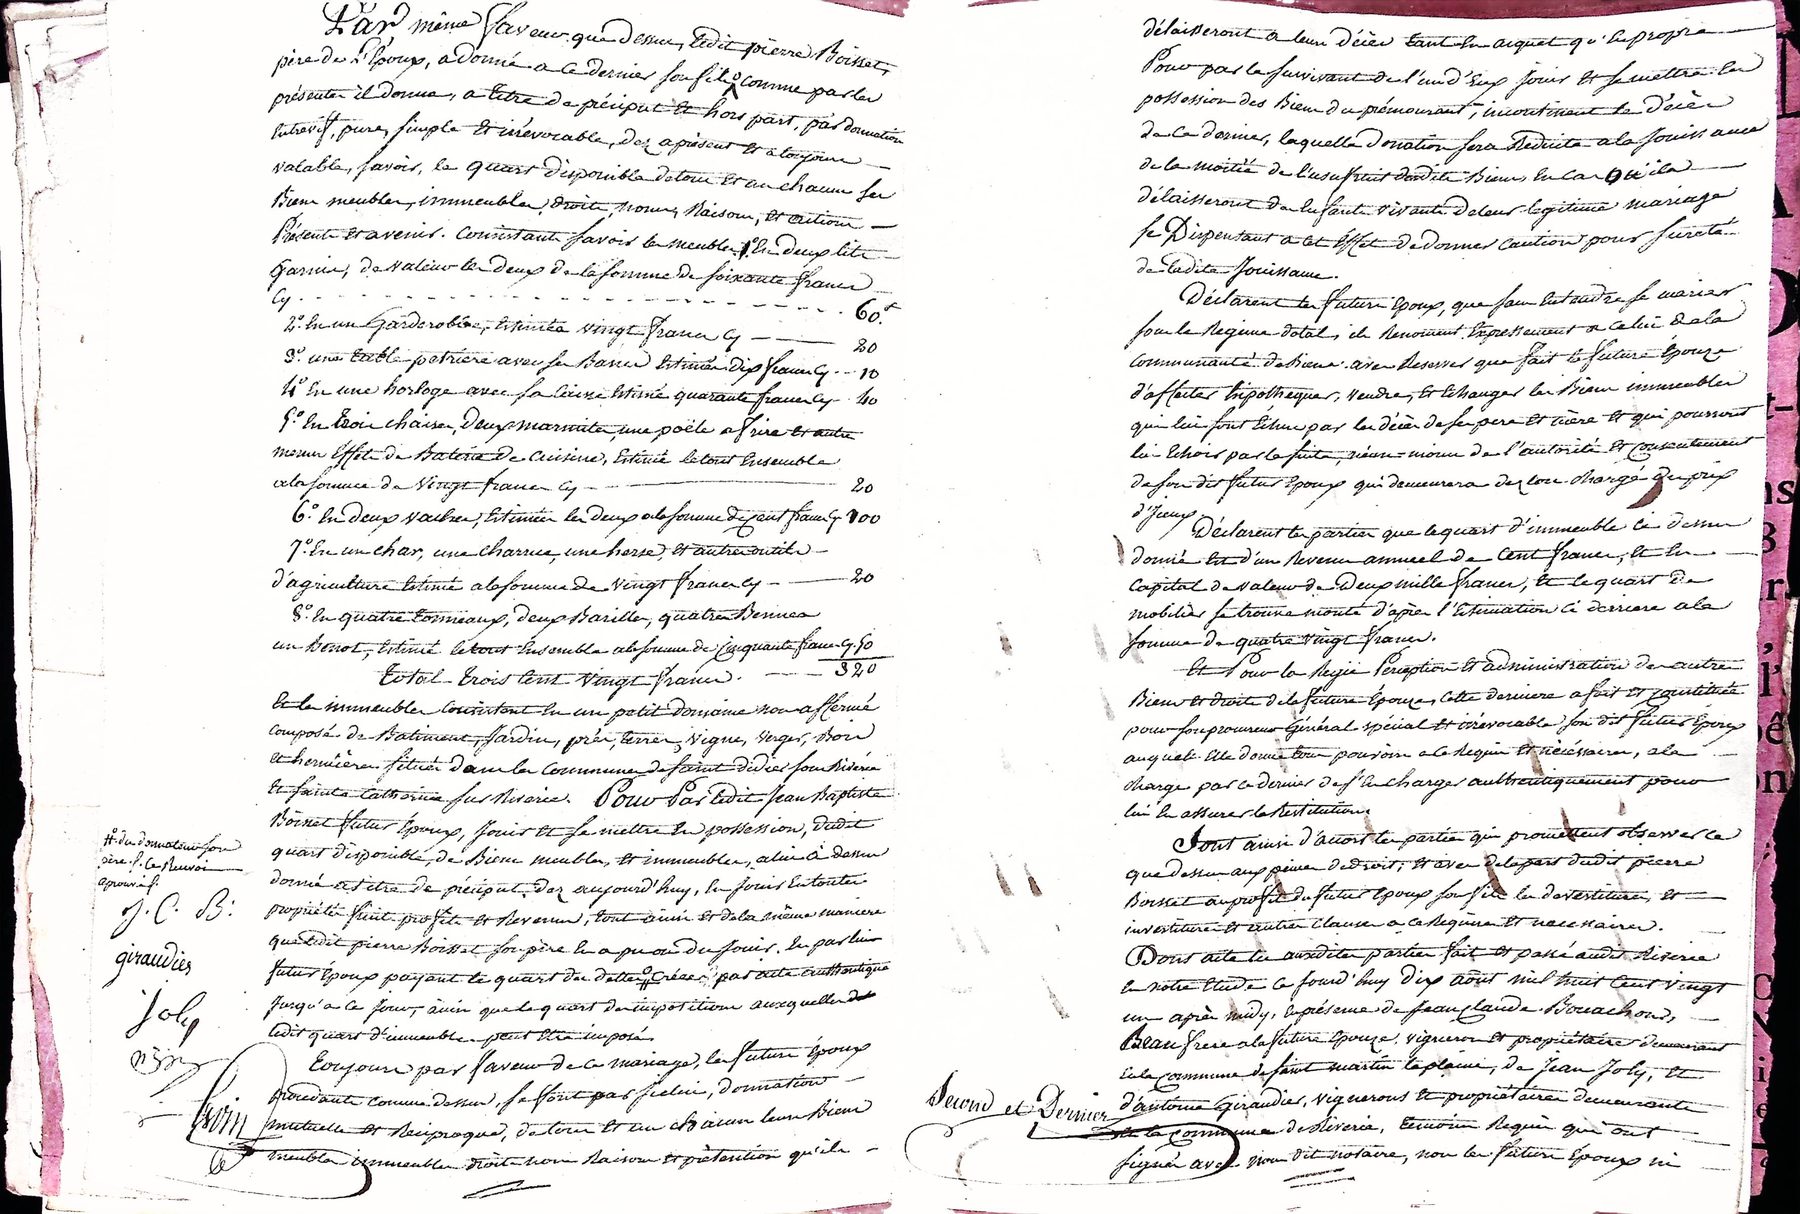 Par même faveur que dessus, ledit pierre Boisset,
père du dt Epoux, a donné a ce dernier son fils comme par les
présentes il donne, a titre de préciput et hors part, par donnation
entrevifs, pure, simple et irrévocable, dez aprésent et a toujours
valable, savoir, le quart disponible de tous et un chacuns ses
Biens meubles, immeubles, droits, noms, Raisons, et actions
Présents et avenir. Consistants savoir les meubles 1o En deux lits
Garnis, de valeur les deux de la somme de soixante francs
Cy . . . 60.f
2o. En un Garderobbe, Estimée vingt francs cy 20
3o. une table petrière avec ses Bancs Estimés dix francs Cy 10
4o En une horloge avec sa Caisse Estimé quarante francs Cy 40
5o. En trois chaises, Deux marmites, une poële a frire et autre
menus Effets de Baterie de Cuisine, Estimé le tout Ensemble
a la somme de vingt francs Cy 20
6o. En deux vaches, Estimées les deux a la somme de Cent francs Cy 100
7o. En un char, une charrue, une herse, et autres outils
d'agriculture Estimé a la somme de vingt francs Cy 20
8o. En quatre tonneaux, deux Barilles, quatre Bennes
un Benot, Estimé le tout Ensemble a la somme de Cinquante francs Cy 50
Total trois cent vingt francs. 320
Et les immeubles Consistant En un petit domaine non affermé
composé de Batiments, Jardin, prés, terres, vigne, verger, Bois
et hermières situés dans les Communes de saint didier sous Riverie
Et sainte Catherine sur Riverie. Pour Par ledit Jean Baptiste
Boisset futur Epoux, Jouir et se mettre En possession, dudit
quart disponible, de Biens meubles, et immeubles, a lui ci dessus
donné a titre de préciput, dez aujourd'huy, En Jouir En toute
propriété fruits profits et Revenus, tout ainsi et de la même manière
que ledit pierre Boisset son père En a pu ou du Jouir. En par lui
futur Epoux payant le quart des dettes # Créées par acte authentique
Jusqu'a ce Jour, ainsi que le quart des impositions auxquelles
ledit quart d'immeubles peut être imposé.
#. du donnateur son
père f. Ce Renvoi
aprouvé f.
J. C. B:
giraudier
Joly
Toujours par faveur de ce mariage, les futurs Epoux
procédants comme dessus, se font par icelui, donnation
mutuelle et Réciproque, de tous et un chacun leurs Biens
meubles immeubles droits noms Raisons et prétentions qu'ils
délaisseront a leurs décès tant En aquet qu'En propre
Pour par le survivant de l'un d'Eux Jouir et se mettre En
possession des Biens du prémourant, incontinent le décès
de ce dernier, laquelle donation sera Réduite a la Jouissance
de la moitié de l'usufruit desdits Biens, En cas qu'ils
délaisseront des Enfants vivants de leur légitime mariage
se Dispensant a cet Effet de donner caution pour sureté
de ladite Jouissance.
Déclarent les futurs Epoux, que sans Entendre se marier
sous le Régime dotal, ils Renoncent Expressement a celui de la
communauté de Biens avec Reserves que fait la future Epouze
d'affecter hipothequer, vendre, et Echanger les Biens immeubles
qui lui sont Echus par les décès de ses pere et mère et qui pourront
lui Echoir par la suite, néanmoins de l'autorité et Consentement
de son dit futur Epoux qui demeurera dez lors chargé du prix
d'Iceux.
Déclarent les parties que le quart d'immeuble ci dessus
donné Est d'un Revenu annuel de Cent francs, Et En
Capital de valeur de Deux mille francs, Et le quart du
mobilier se trouve monté d'après l'Estimation ci derriere a la
somme de quatre vingt francs.
Et Pour la Régie Perception et administration des autres
Biens et droits de la future Epouze, cette derniere a fait et Constitué
pour son procureur Général spécial et irrévocable son dit futur Epoux
auquel Elle donne tous pouvoirs a le Requis et nécéssaires, a la
charge par ce dernier de s'En charger authentiquement pour
lui En assurer la Restitution.
Tout ainsi d'accord les parties qui promettent observer ce
que dessus aux peines de droit; et avec de la part dudit pierre
Boisset au profit du futur Epoux son fils les devestitures, et
investitures et autres clauses a ce Requises et necessaires.
Dont acte les auxdites parties fait et passé audit Riverie
En notre Etude ce Jourd'huy dix aôut mil huit Cent vingt
un après midy, En présence de Jean Claude Bonachon,
Beau frere a la future Epouze, vigneron et propriétaire demeurant
En la Commune de saint martin la plaine, de Jean Joly, Et
d'antoine Giraudier, vignerons Et propriétaires demeurants
En la Commune de Riverie, témoins Requis qui ont
signés avec nous dit notaire, non les futurs Epoux ni
Second et Dernier